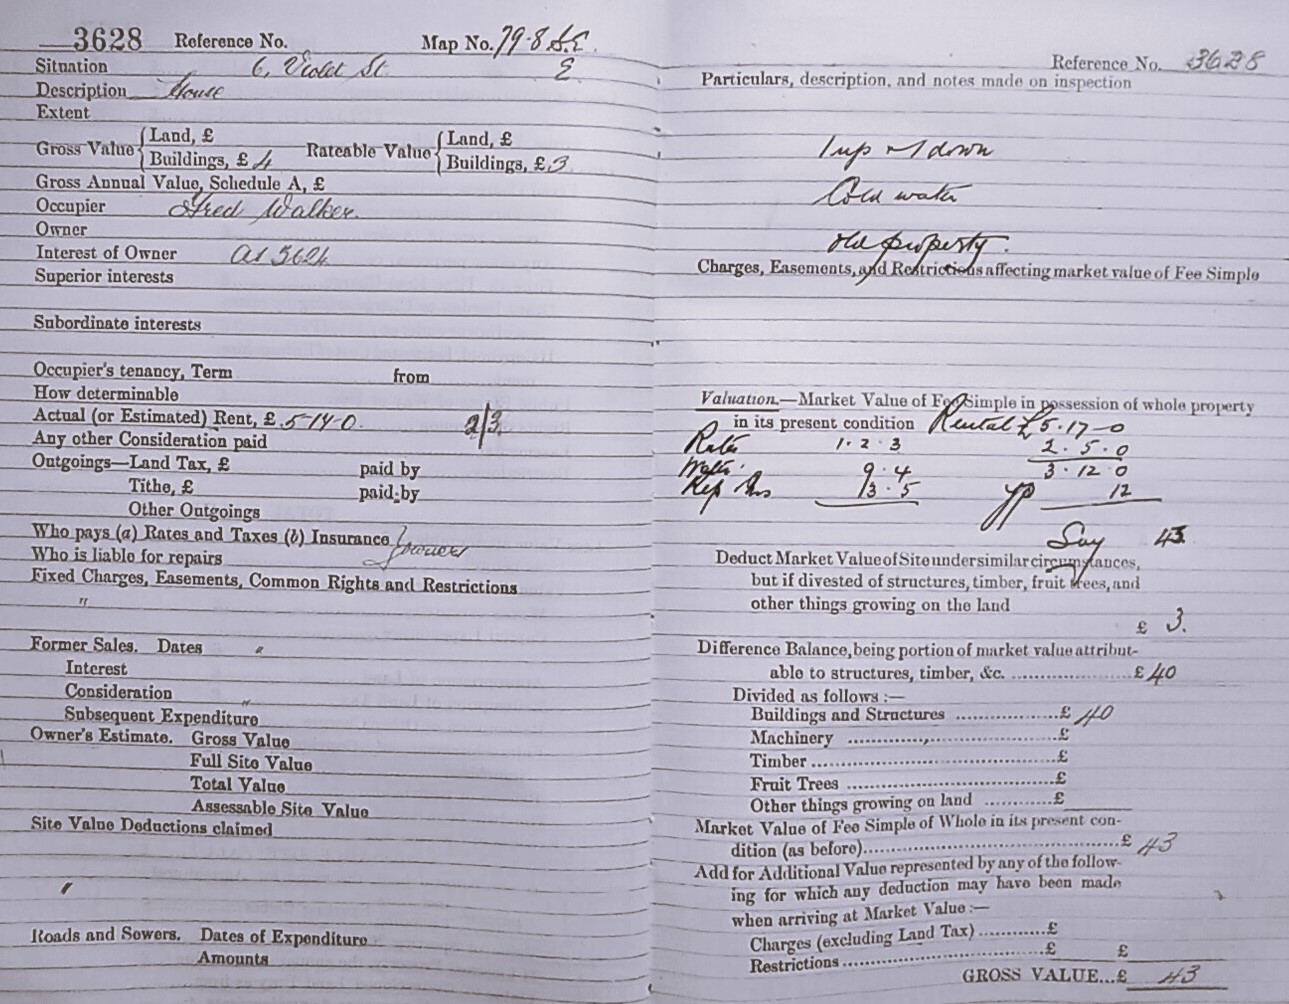 3628 Reference No. Map No. 79.8 S.E.
Situation 6, Violet St. E
Description House
Extent
Gross Value { Land, £
Buildings, £ 4
Rateable Value { Land, £
Buildings, £ 3
Gross Annual Value, Schedule A, £
Occupier Fred Walker.
Owner
Interest of Owner as 3624
Superior interests
Subordinate interests
Occupier's tenancy, Term from
How determinable
Actual (or Estimated) Rent, £ 5-14-0. 2/3
Any other Consideration paid
Outgoings—Land Tax, £ paid by
Tithe, £ paid by
Other Outgoings
Who pays (a) Rates and Taxes (b) Insurance } owners
Who is liable for repairs
Fixed Charges, Easements, Common Rights and Restrictions
"
Former Sales. Dates "
Interest
Consideration "
Subsequent Expenditure
Owner's Estimate. Gross Value
Full Site Value
Total Value
Assessable Site Value
Site Value Deductions claimed
Roads and Sewers. Dates of Expenditure
Amounts
Reference No. 3628
Particulars, description, and notes made on inspection
1 up & 1 down
Cold water
old property.
Charges, Easements, and Restrictions affecting market value of Fee Simple
Valuation.—Market Value of Fee Simple in possession of whole property
in its present condition Rental £5-17-0
Rates 1. 2. 3 2. 5. 0
Water. 9. 4 3. 12. 0
Rep 13. 5 YP 12
Say 43
Deduct Market Value of Site under similar circumstances,
but if divested of structures, timber, fruit trees, and
other things growing on the land
£ 3.
Difference Balance, being portion of market value attribut-
able to structures, timber, &c. .................... £ 40
Divided as follows :—
Buildings and Structures .................£ 40
Machinery .................£
Timber .................£
Fruit Trees .................£
Other things growing on land ............£
Market Value of Fee Simple of Whole in its present con-
dition (as before).................£ 43
Add for Additional Value represented by any of the follow-
ing for which any deduction may have been made
when arriving at Market Value :—
Charges (excluding Land Tax) ............£
Restrictions .................£ £
GROSS VALUE...£ 43